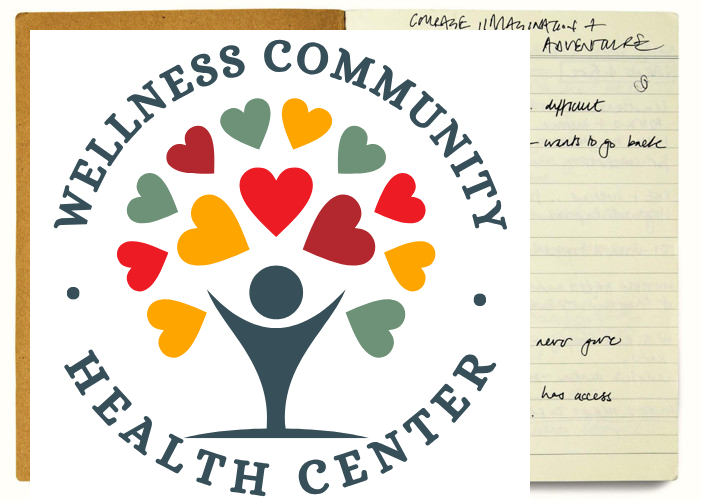 COURAGE IMAGINATION +
ADVENTURE
difficult
- wants to go back
never gave
has access
WELLNESS COMMUNITY
HEALTH CENTER